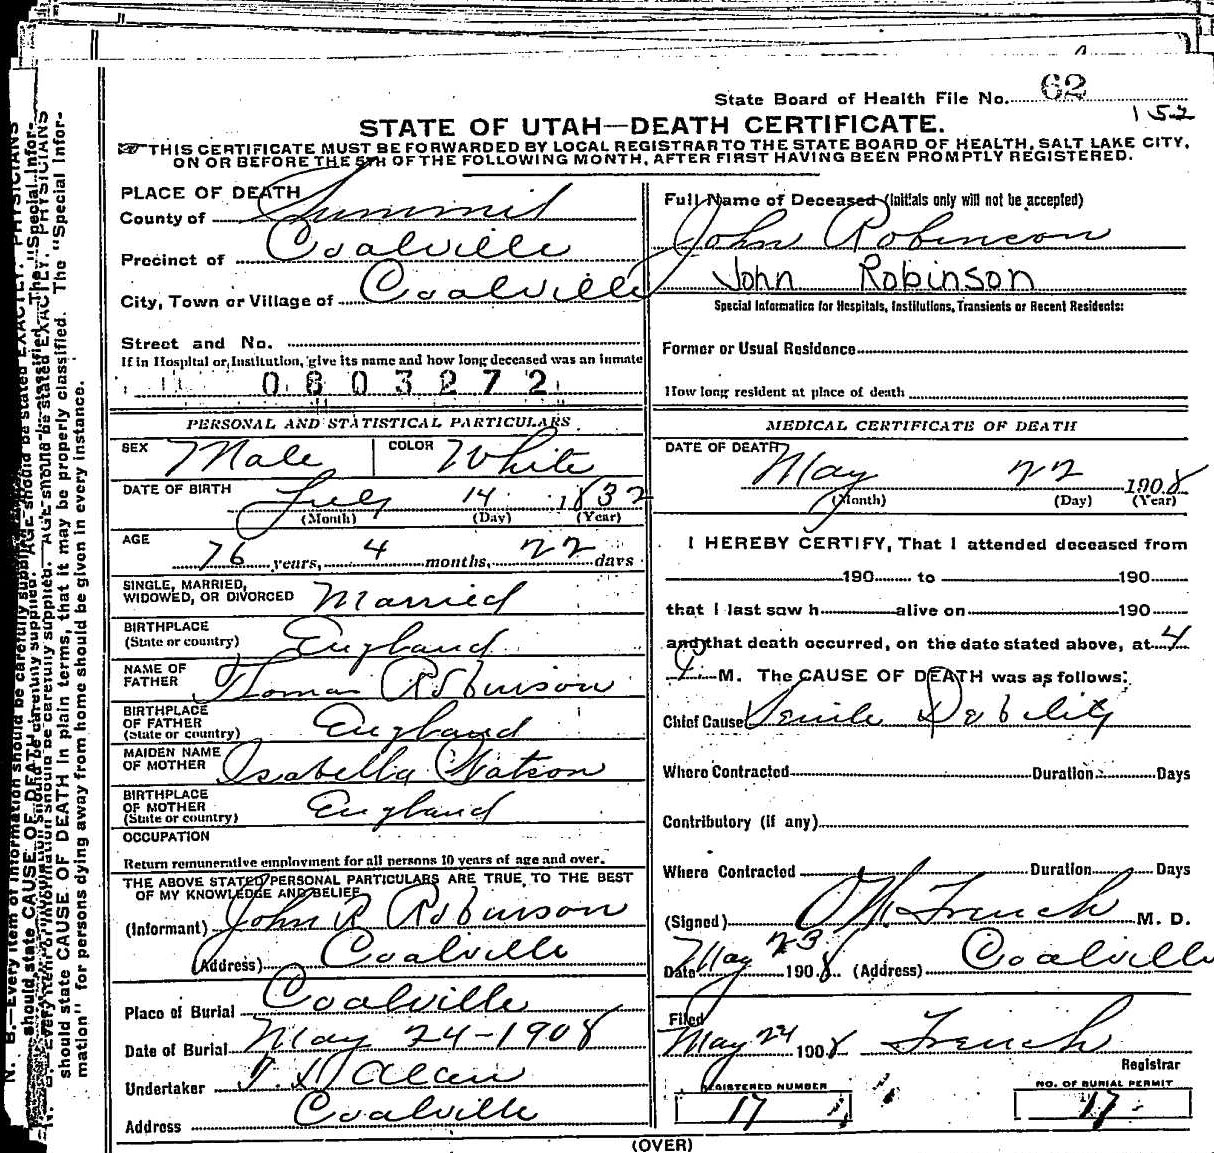 State Board of Health File No. 62
152
STATE OF UTAH—DEATH CERTIFICATE.
THIS CERTIFICATE MUST BE FORWARDED BY LOCAL REGISTRAR TO THE STATE BOARD OF HEALTH, SALT LAKE CITY,
ON OR BEFORE THE 5TH OF THE FOLLOWING MONTH, AFTER FIRST HAVING BEEN PROMPTLY REGISTERED.
PLACE OF DEATH
County of Summit
Precinct of Coalville
City, Town or Village of Coalville
Street and No.
If in Hospital or Institution, give its name and how long deceased was an inmate
0803272
Full Name of Deceased (Initials only will not be accepted)
John Robinson
John Robinson
Special Information for Hospitals, Institutions, Transients or Recent Residents:
Former or Usual Residence
How long resident at place of death
PERSONAL AND STATISTICAL PARTICULARS
SEX Male COLOR White
DATE OF BIRTH July 14 1832
(Month) (Day) (Year)
AGE 76 years, 4 months, 22 days
SINGLE, MARRIED,
WIDOWED, OR DIVORCED Married
BIRTHPLACE
(State or country) England
NAME OF
FATHER Thomas Robinson
BIRTHPLACE
OF FATHER
(State or country) England
MAIDEN NAME
OF MOTHER Isabella Watson
BIRTHPLACE
OF MOTHER
(State or country) England
OCCUPATION
Return remunerative employment for all persons 10 years of age and over.
THE ABOVE STATED PERSONAL PARTICULARS ARE TRUE, TO THE BEST
OF MY KNOWLEDGE AND BELIEF
(Informant) John R Robinson
(Address) Coalville
Place of Burial Coalville
Date of Burial May 24-1908
Undertaker
Address Coalville
MEDICAL CERTIFICATE OF DEATH
DATE OF DEATH
May 22 1908
(Month) (Day) (Year)
I HEREBY CERTIFY, That I attended deceased from
190 to 190
that I last saw h alive on 190
and that death occurred, on the date stated above, at 4
M. The CAUSE OF DEATH was as follows:
Chief Cause Senile Debility
Where Contracted Duration Days
Contributory (if any)
Where Contracted Duration Days
(Signed) French M. D.
Date May 23 1908 (Address) Coalville
Filed
May 24 1908 French
Registrar
REGISTERED NUMBER
17
NO. OF BURIAL PERMIT
17
(OVER)
N. B.—Every item of information should be carefully supplied. AGE should be stated EXACTLY. PHYSICIANS
should state CAUSE OF DEATH in plain terms, that it may be properly classified. The "Special Infor-
mation" for persons dying away from home should be given in every instance.